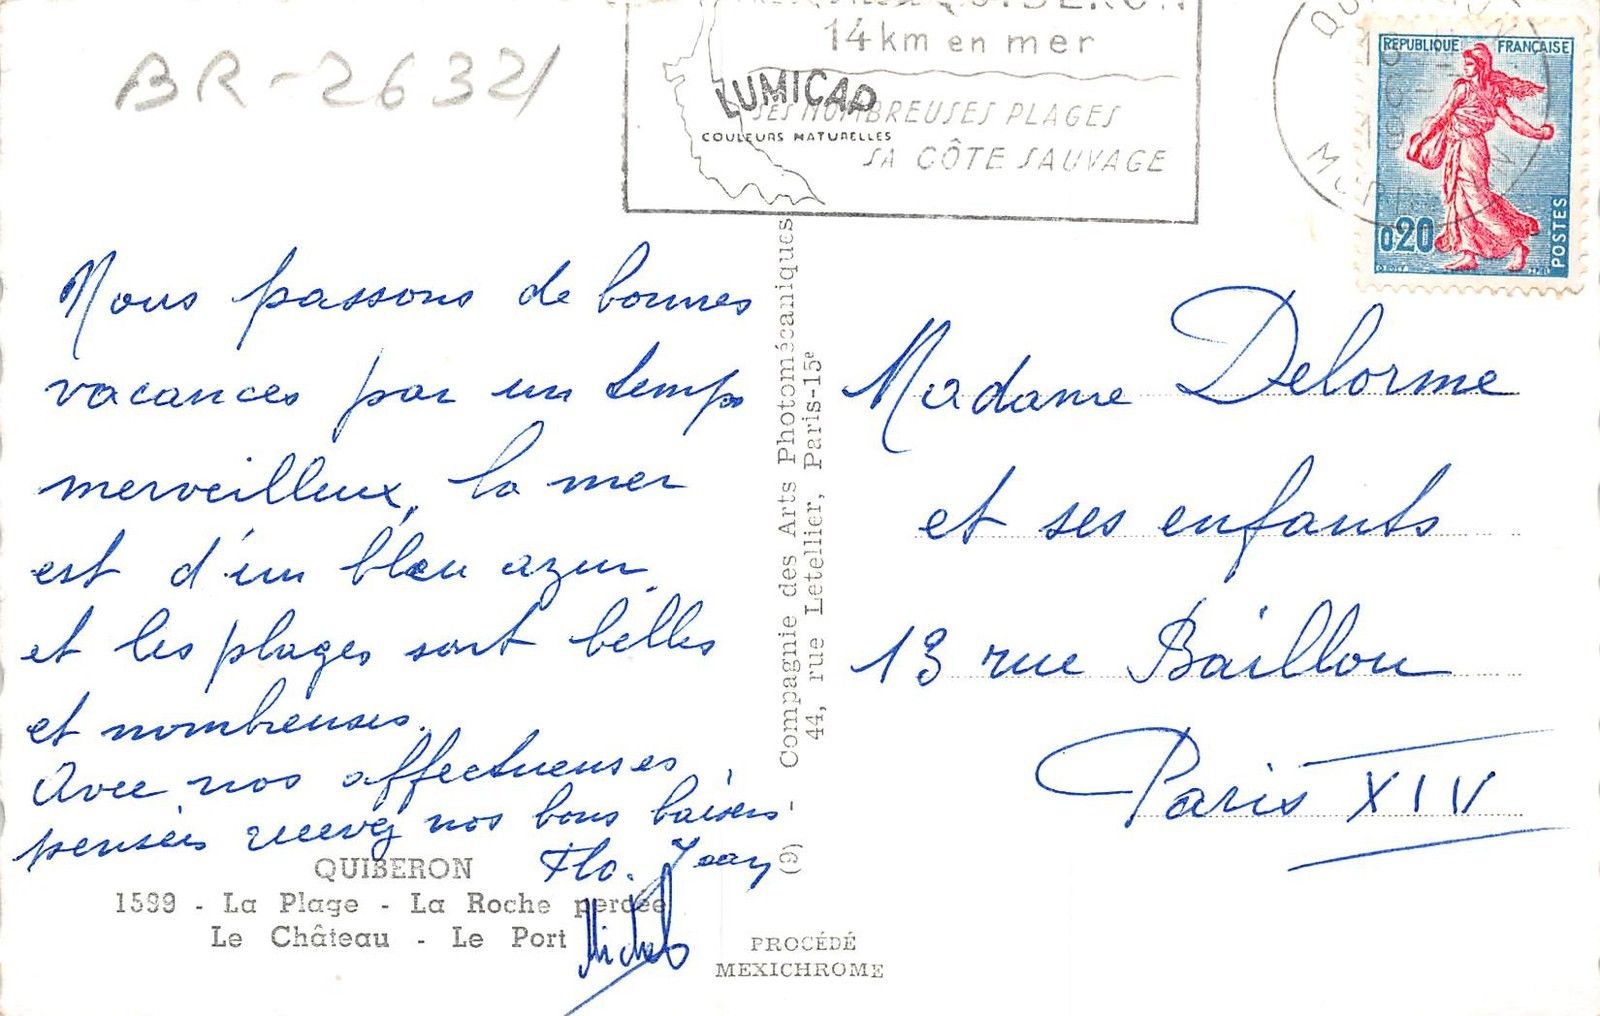 BR-26321
QUIBERON
14km en mer
LUMICAP
COULEURS NATURELLES
SES NOMBREUSES PLAGES
SA CÔTE SAUVAGE
REPUBLIQUE FRANÇAISE
0,20
POSTES
Nous passons de bonnes
vacances par un temps
merveilleux, la mer
est d'un bleu azur,
et les plages sont belles
et nombreuses.
Avec nos affectueuses
pensées recevez nos bons baisers
Flo. Jean
Michel
QUIBERON
1599 - La Plage - La Roche percée
Le Château - Le Port
(9) - Compagnie des Arts Photomécaniques
44, rue Letellier, Paris-15e
PROCÉDÉ
MEXICHROME
Madame Delorme
et ses enfants
13 rue Baillou
Paris XIV